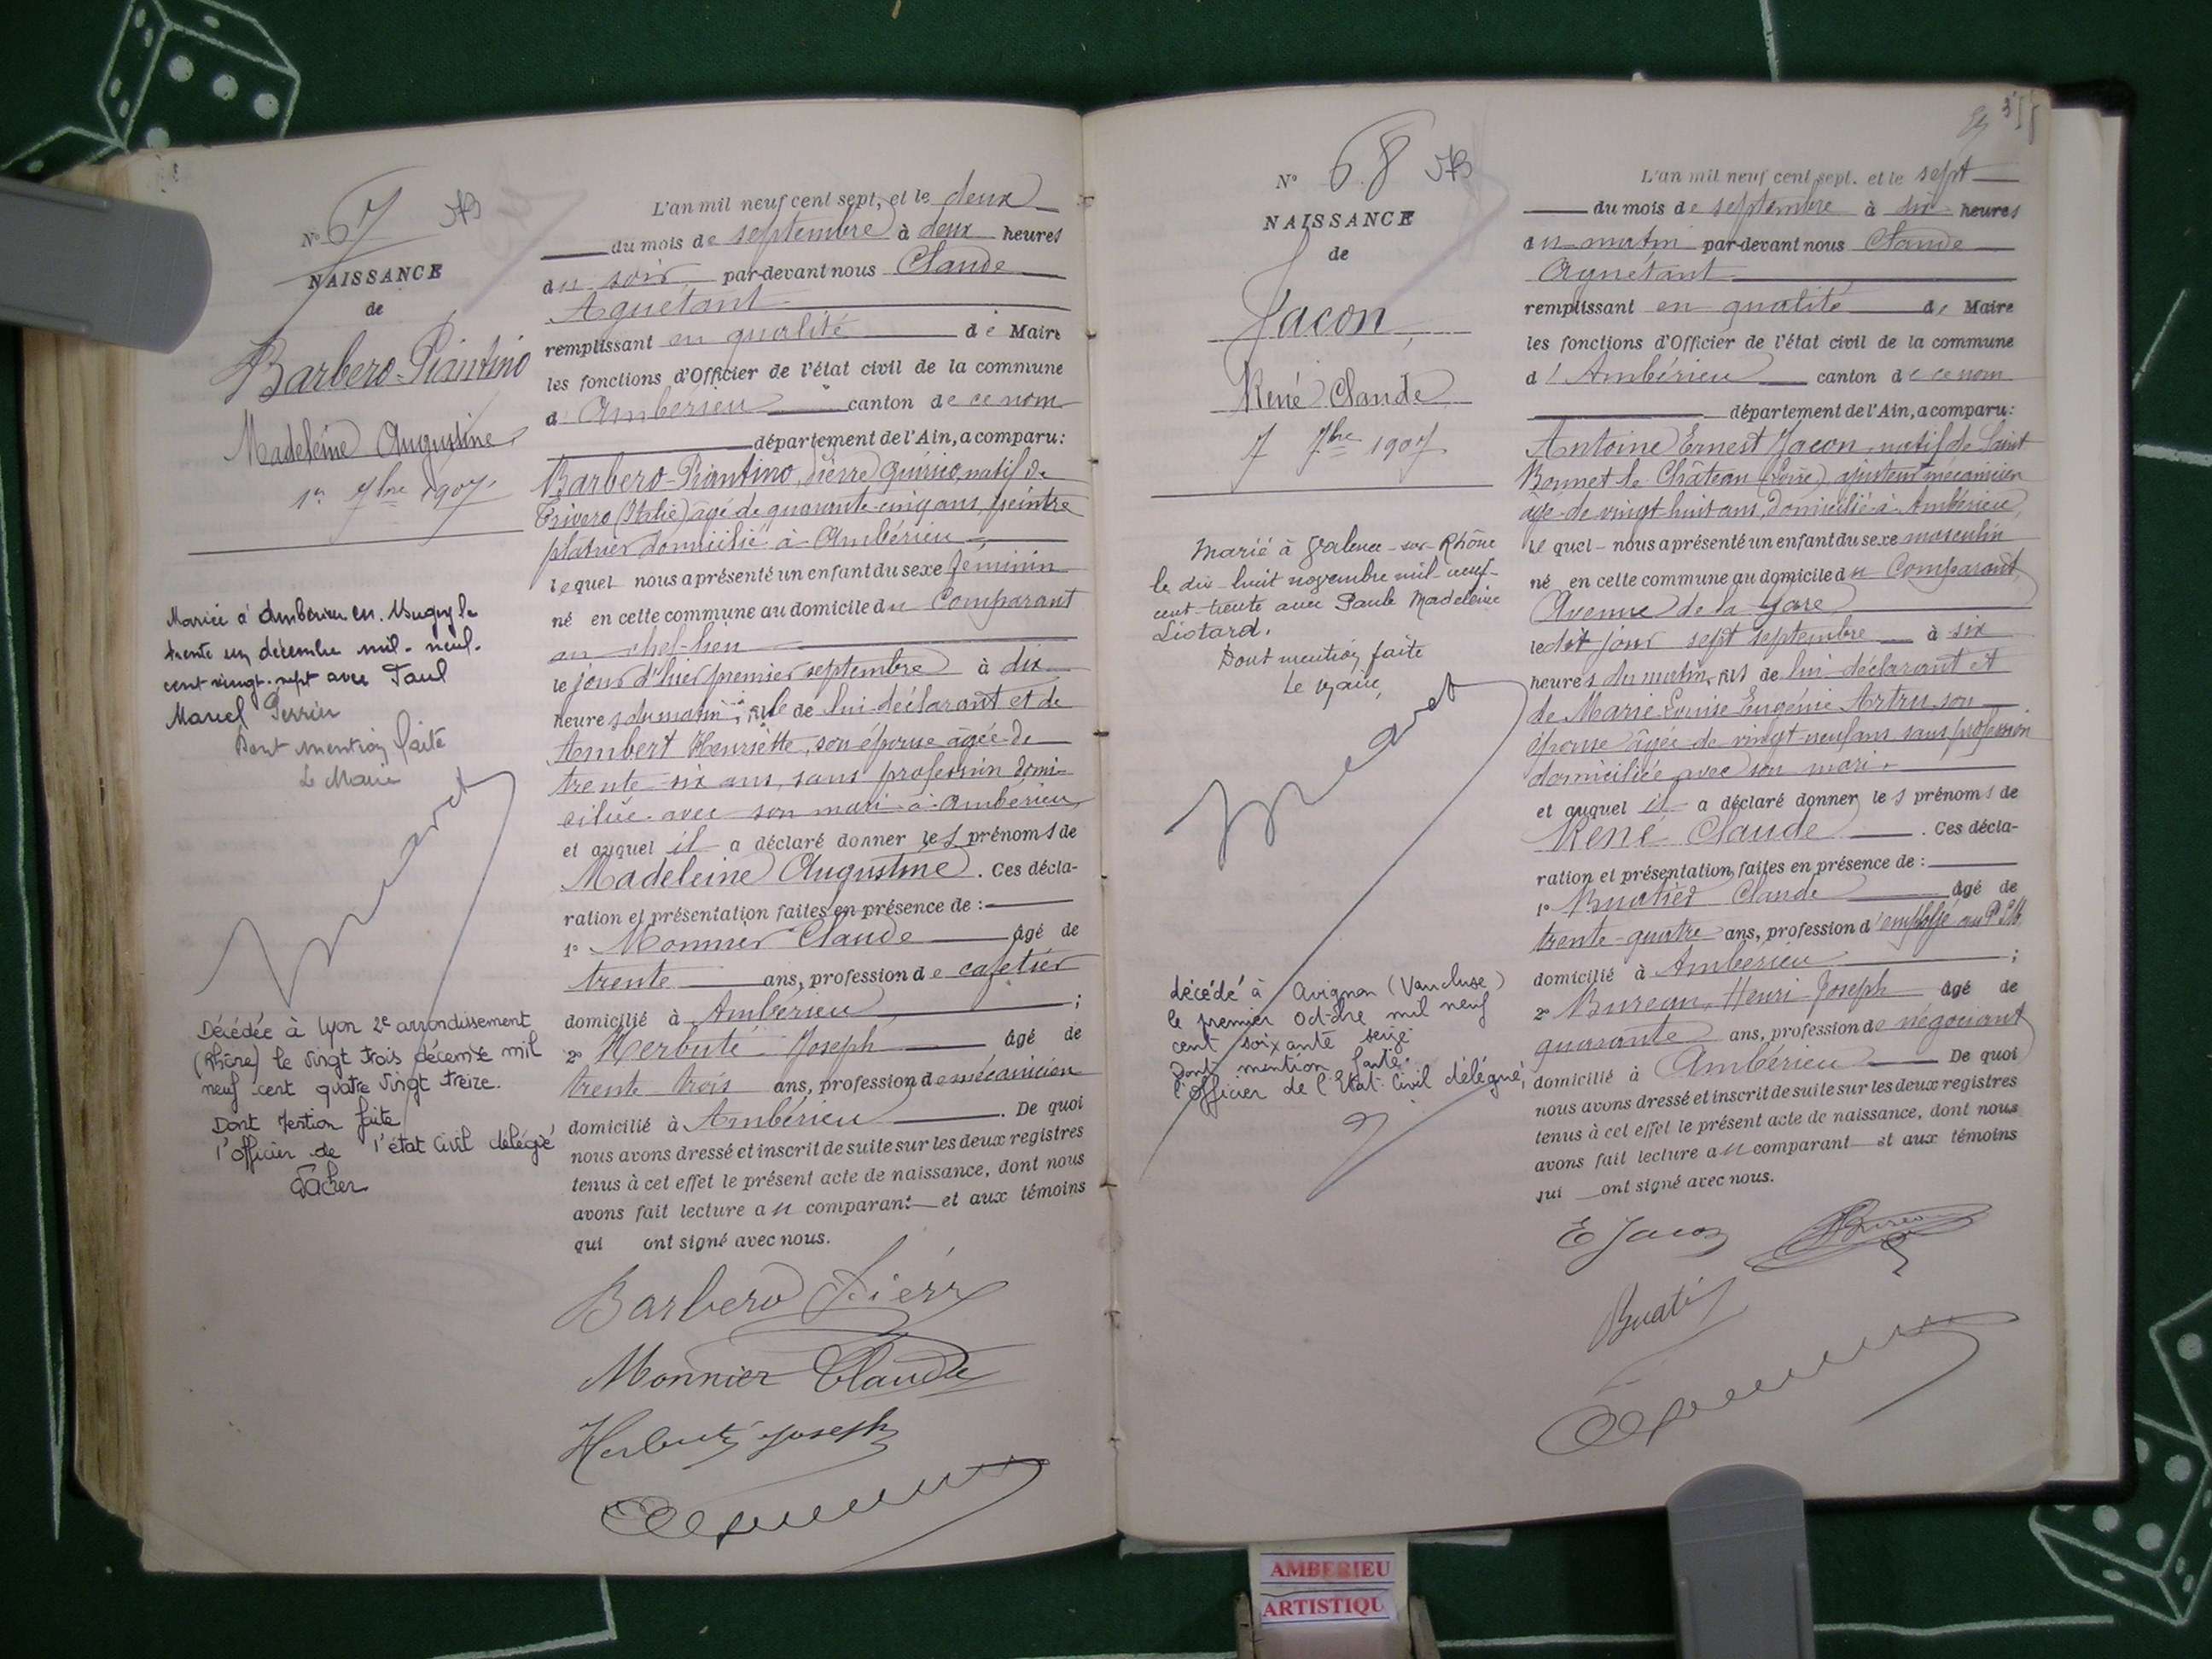 N° 67 AB
NAISSANCE
de
Barbero-Piantino
Madeleine Augustine
1er 7bre 1907
Mariée à Ambérieu en Bugey le
trente un décembre mil-neuf-
cent vingt-sept avec Paul
Marcel Perrin
Dont mention faite
Le Maire
Décédée à Lyon 2e arrondissement
(Rhône) le vingt trois décembre mil
neuf cent quatre vingt treize.
Dont mention faite
l'officier de l'état civil délégué
L'an mil neuf cent sept, et le deux
du mois de septembre à deux heures
du soir par-devant nous Claude
Aguétant
remplissant en qualité de Maire
les fonctions d'Officier de l'état civil de la commune
d'Ambérieu canton de ce nom
département de l'Ain, a comparu:
Barbero-Piantino, Pierre Quirico, natif de
Trivero (Italie) âgé de quarante-cinq ans, peintre
plâtrier domicilié à Ambérieu
lequel nous a présenté un enfant du sexe féminin
né en cette commune au domicile du Comparant
au chef-lieu
le jour d'hier premier septembre à dix
heures du matin, fille de lui déclarant et de
Ambert Henriette, son épouse âgée de
trente-six ans, sans profession domi-
ciliée avec son mari à Ambérieu
et auquel il a déclaré donner les prénoms de
Madeleine Augustine. Ces décla-
ration et présentation faites en présence de :
1° Monnier Claude âgé de
trente ans, profession de cafetier
domicilié à Ambérieu ;
2° Herbuté Joseph âgé de
trente trois ans, profession de mécanicien
domicilié à Ambérieu. De quoi
nous avons dressé et inscrit de suite sur les deux registres
tenus à cet effet le présent acte de naissance, dont nous
avons fait lecture au comparant et aux témoins
qui ont signé avec nous.
Barbero Pierr
Monnier Claude
Herbuté Joseph
N° 68 AB
NAISSANCE
de
Jacon
René Claude
7 7bre 1907
Marié à Valence-sur-Rhône
le dix-huit novembre mil-neuf-
cent-trente avec Paule Madeleine
Liotard.
Dont mention faite
Le Maire
décédé à Avignon (Vaucluse)
le premier Octobre mil neuf
cent soixante seize
Dont mention faite.
l'officier de l'Etat Civil délégué,
L'an mil neuf cent sept. et le sept
du mois de septembre à six heures
du matin par-devant nous Claude
Aguétant
remplissant en qualité de Maire
les fonctions d'Officier de l'état civil de la commune
d'Ambérieu canton de ce nom
département de l'Ain, a comparu:
Antoine Ernest Jacon, natif de Saint
Bonnet le Château (Loire) ajusteur mécanicien
âgé de vingt-huit ans, domicilié à Ambérieu,
lequel nous a présenté un enfant du sexe masculin
né en cette commune au domicile du Comparant
Avenue de la Gare
le dit jour sept septembre à six
heures du matin, fils de lui déclarant et
de Marie Louise Eugénie Artru, son
épouse âgée de vingt-neuf ans sans profession
domiciliée avec son mari.
et auquel il a déclaré donner les prénoms de
René Claude. Ces décla-
ration et présentation faites en présence de :
1° Buatier Claude âgé de
trente-quatre ans, profession d'employé au P.L.M.
domicilié à Ambérieu ;
2° Bureau, Henri Joseph âgé de
quarante ans, profession de négociant
domicilié à Ambérieu De quoi
nous avons dressé et inscrit de suite sur les deux registres
tenus à cet effet le présent acte de naissance, dont nous
avons fait lecture au comparant et aux témoins
qui ont signé avec nous.
E Jacon
Buatier
AMBERIEU
ARTISTIQU